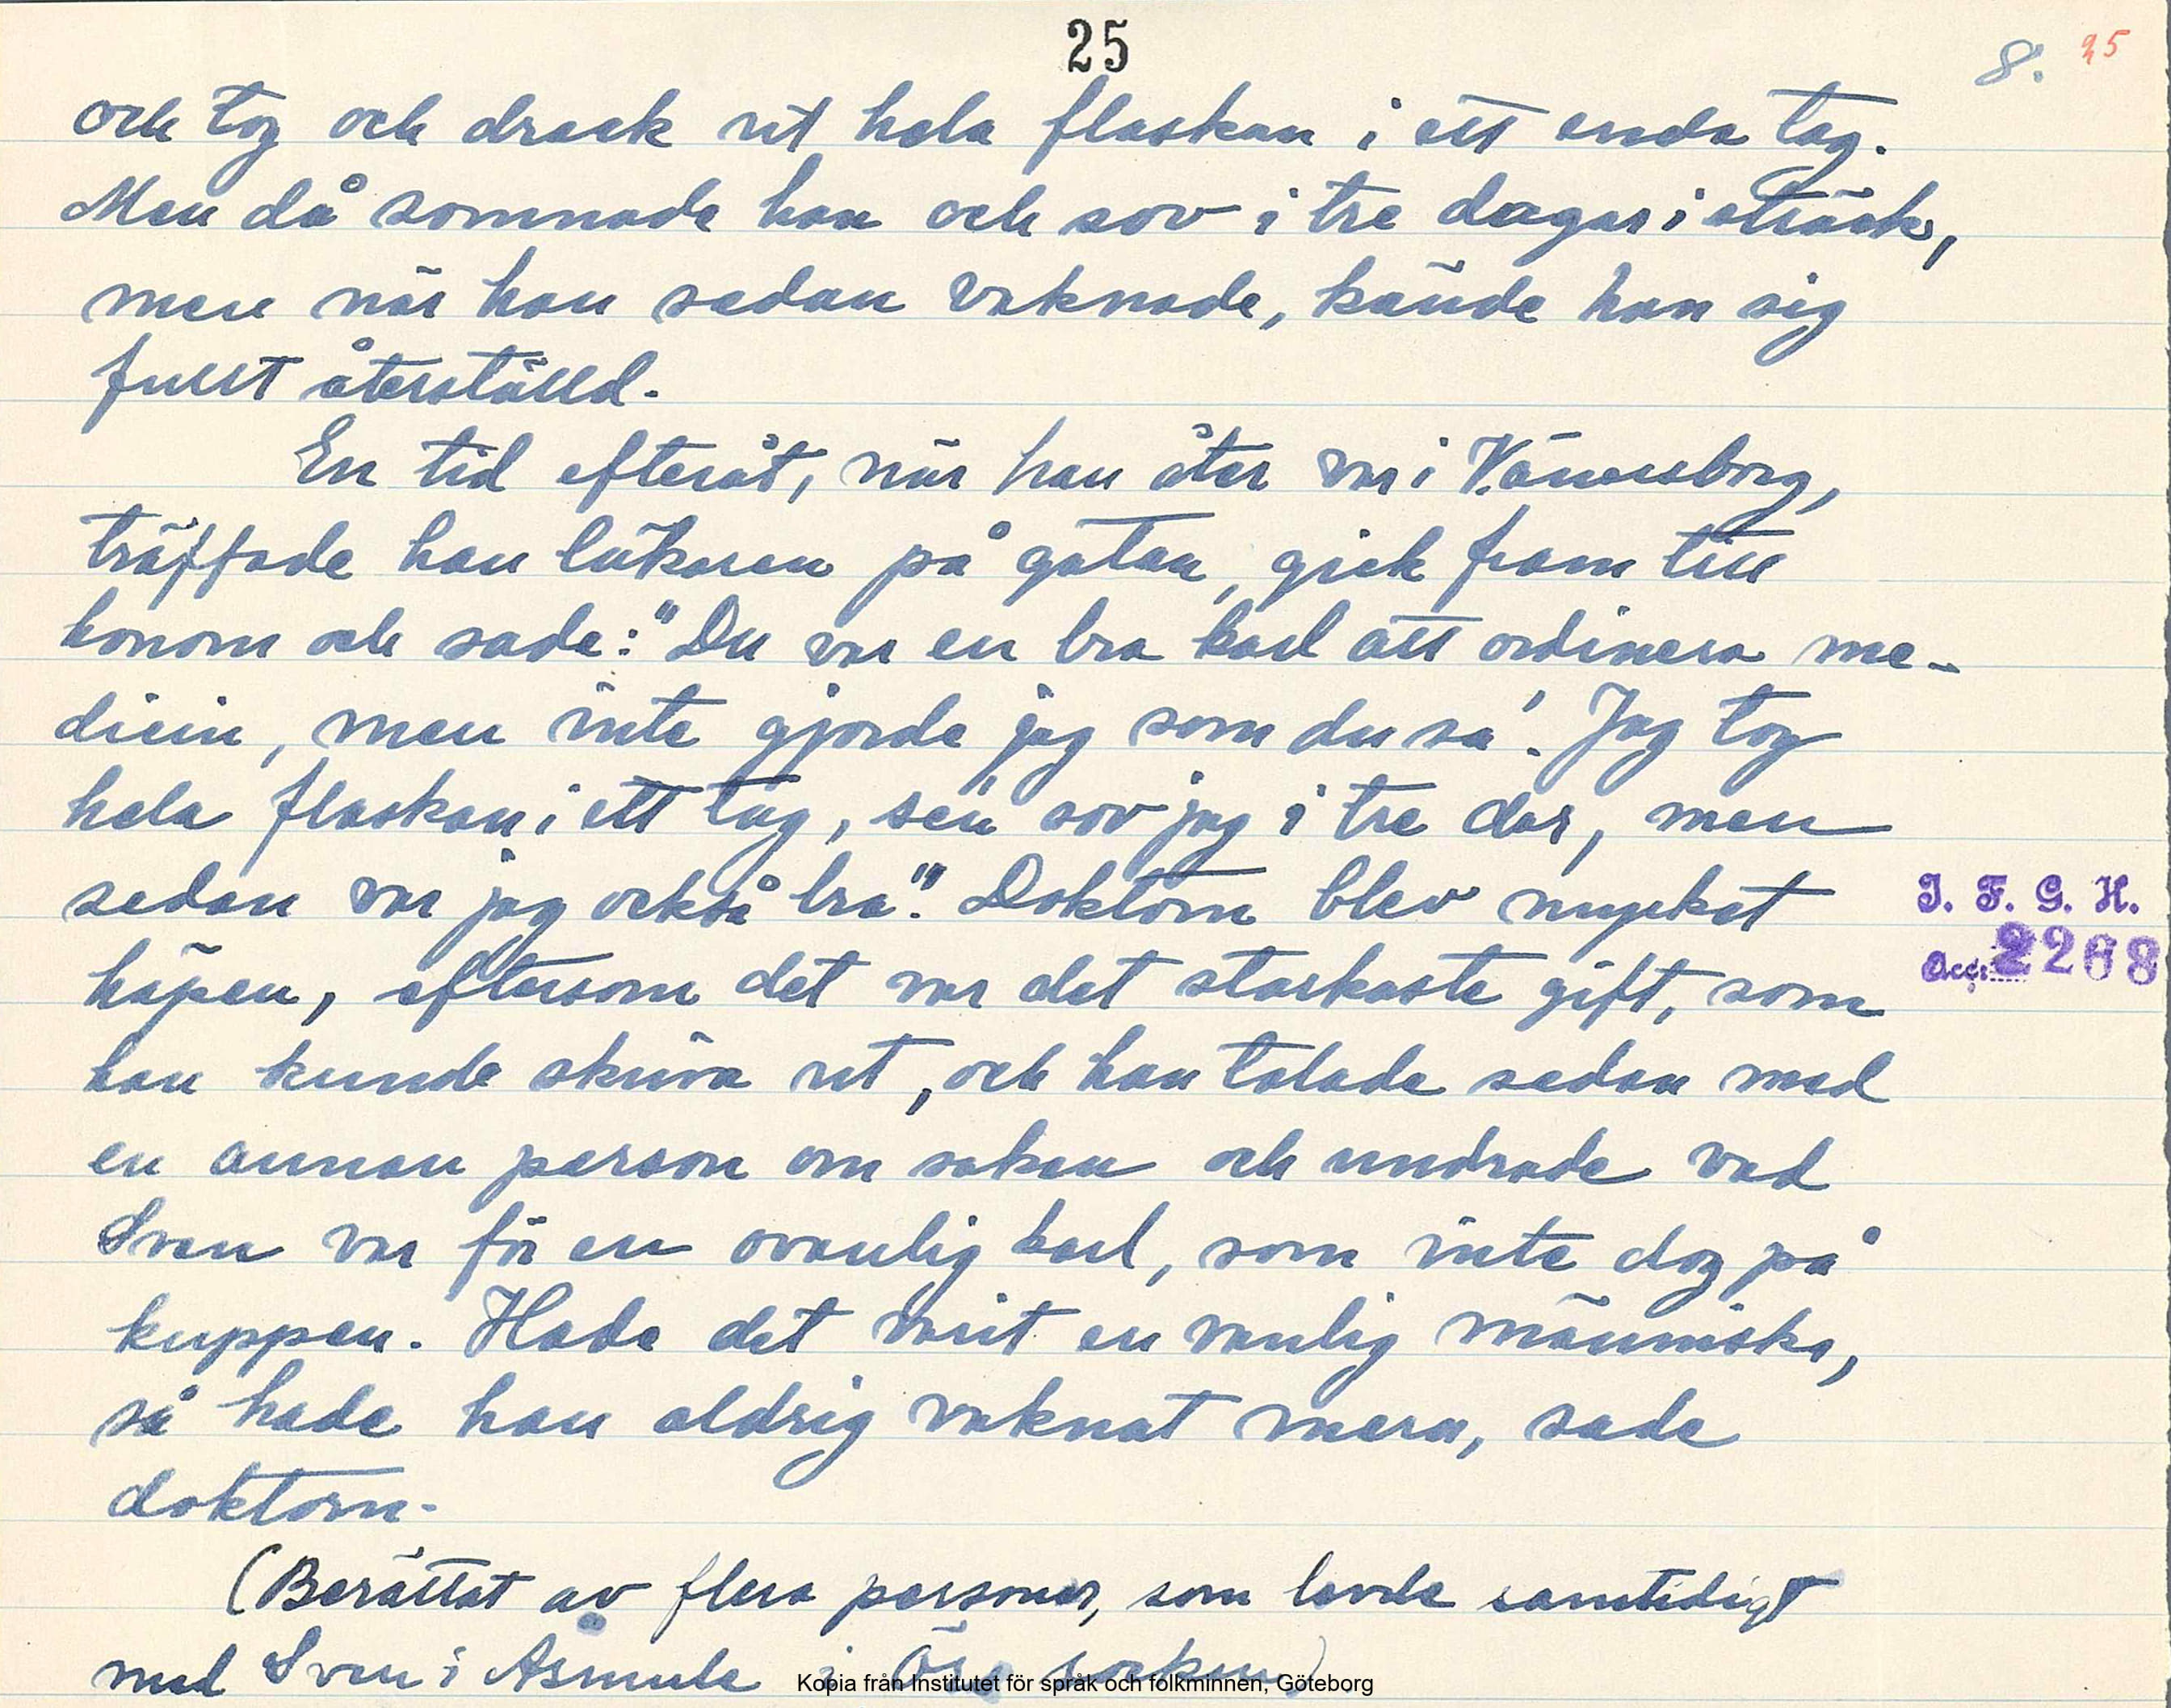 25
8. 25
och tog och drack ut hela flaskan i ett enda tag.
Men då somnade han och sov i tre dagar i sträck,
men när han sedan vaknade, kände han sig
fullt återställd.
En tid efteråt, när han åter var i Vänersborg,
träffade han läkaren på gatan, gick fram till
honom och sade: "Du var en bra karl att ordinera me-
dicin, men inte gjorde jag som du sa'. Jag tog
hela flaskan i ett tag, sen sov jag i tre dar, men
sedan var jag också bra". Doktorn blev mycket
häpen, eftersom det var det starkaste gift, som
han kunde skriva ut, och han talade sedan med
en annan person om saken och undrade vad
Sven var för en ovanlig karl, som inte dog på
kuppen. Hade det varit en vanlig människa,
så hade han aldrig vaknat mera, sade
doktorn.
(Berättat av flera personer, som levde samtidigt
med Sven i Åsmule i Öra socken)
J. F. G. H.
Acc. 2268
Kopia från Institutet för språk och folkminnen, Göteborg